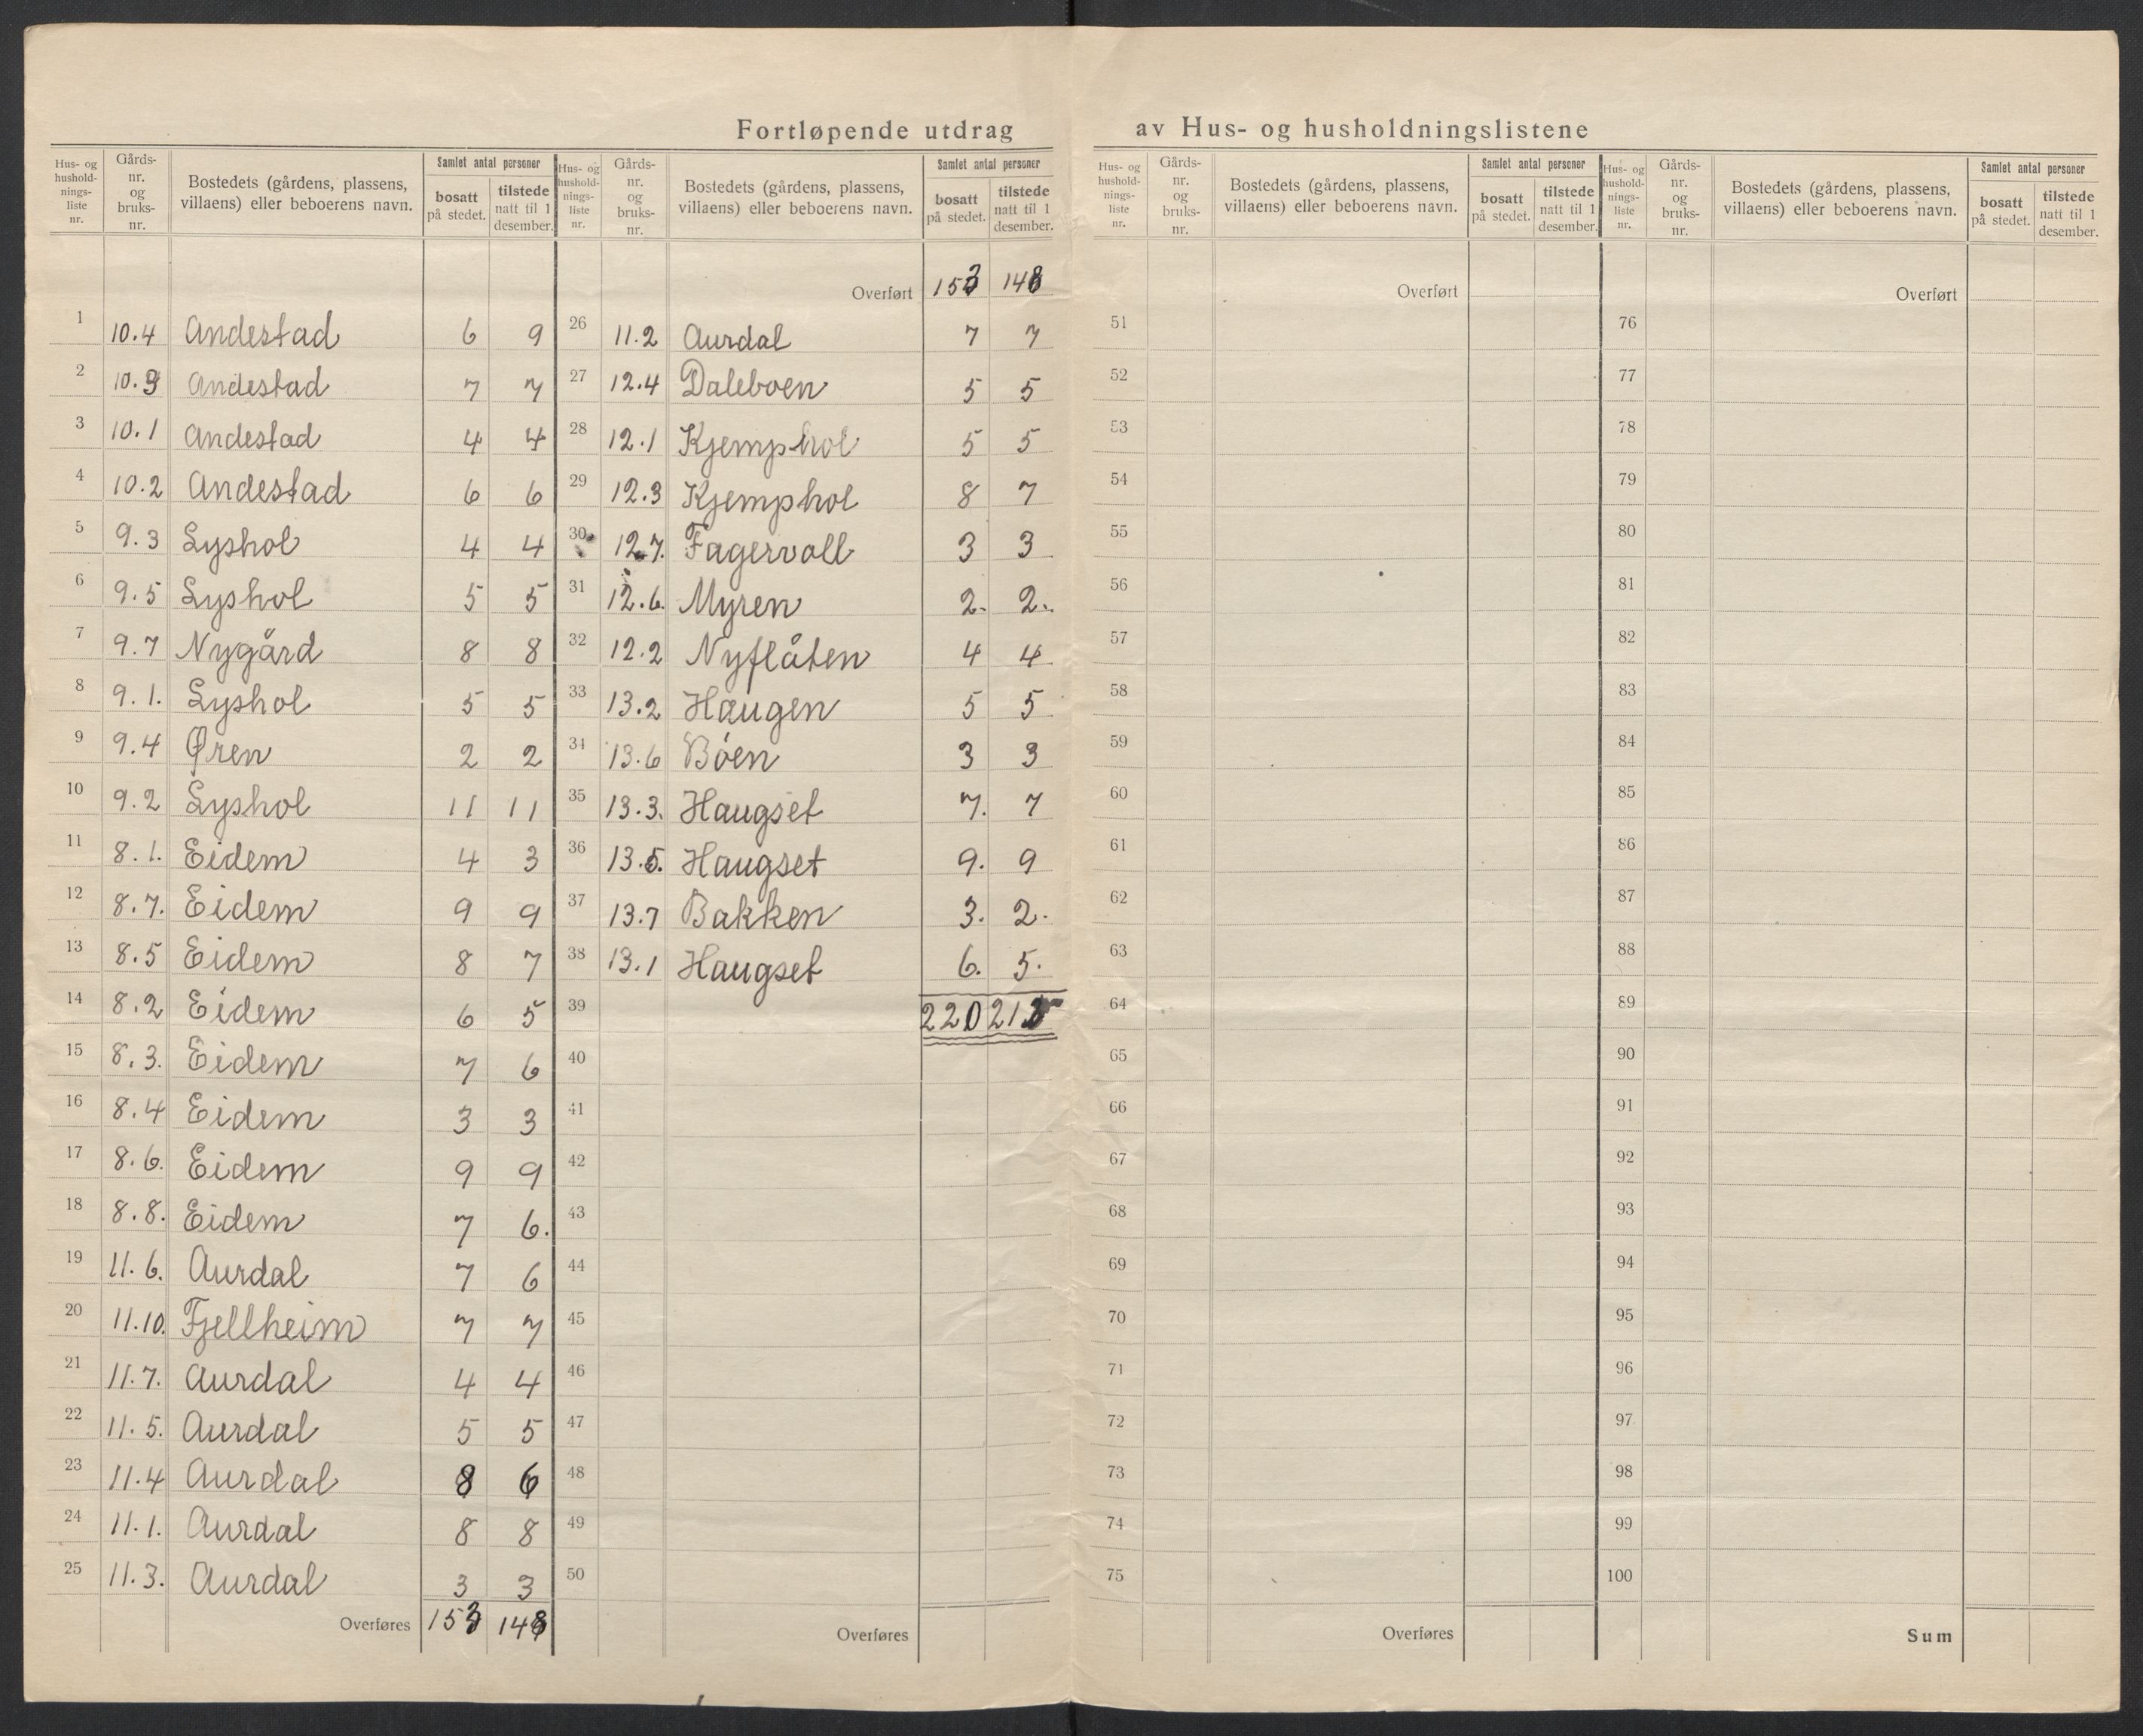 Fortløpende utdrag av Hus- og husholdningslistene
Hus- og hushold-nings-liste nr. | Gårds-nr. og bruks-nr. | Bostedets (gårdens, plassens, villaens) eller beboerens navn. | Samlet antal personer | bosatt på stedet. | tilstede natt til 1 desember.
1 10.4 Andestad 6 9
2 10.3 Andestad 7 7
3 10.1 Andestad 4 4
4 10.2 Andestad 6 6
5 9.3 Lyshol 4 4
6 9.5 Lyshol 5 5
7 9.7 Nygård 8 8
8 9.1. Lyshol 5 5
9 9.4 Øren 2 2
10 9.2 Lyshol 11 11
11 8.1. Eidem 4 3
12 8.7. Eidem 9 9
13 8.5 Eidem 8 7
14 8.2 Eidem 6 5
15 8.3. Eidem 7 6
16 8.4 Eidem 3 3
17 8.6. Eidem 9 9
18 8.8. Eidem 7 6.
19 11.6. Aurdal 7 6
20 11.10. Fjellheim 7 7
21 11.7. Aurdal 4 4
22 11.5. Aurdal 5 5
23 11.4 Aurdal 8 6
24 11.1. Aurdal 8 8
25 11.3. Aurdal 3 3
Overføres 153 148
Hus- og hushold-nings-liste nr. | Gårds-nr. og bruks-nr. | Bostedets (gårdens, plassens, villaens) eller beboerens navn. | Samlet antal personer | bosatt på stedet. | tilstede natt til 1 desember.
Overført 153 148
26 11.2 Aurdal 7 7
27 12.4 Daleboen 5 5
28 12.1 Kjemphol 5 5
29 12.3 Kjemphol 8 7
30 12.7. Fagervoll 3 3
31 12.6. Myren 2. 2.
32 12.2 Nyflåten 4 4
33 13.2 Haugen 5 5
34 13.6 Bóen 3 3
35 13.3. Haugset 7. 7
36 13.5. Haugset 9. 9
37 13.7 Bakken 3. 2.
38 13.1 Haugset 6. 5.
39 220
40
41
42
43
44
45
46
47
48
49
50
Overføres
Hus- og hushold-nings-liste nr. | Gårds-nr. og bruks-nr. | Bostedets (gårdens, plassens, villaens) eller beboerens navn. | Samlet antal personer | bosatt på stedet. | tilstede natt til 1 desember.
Overført
51
52
53
54
55
56
57
58
59
60
61
62
63
64
65
66
67
68
69
70
71
72
73
74
75
Overføres
Hus- og hushold-nings-liste nr. | Gårds-nr. og bruks-nr. | Bostedets (gårdens, plassens, villaens) eller beboerens navn. | Samlet antal personer | bosatt på stedet. | tilstede natt til 1 desember.
Overført
76
77
78
79
80
81
82
83
84
85
86
87
88
89
90
91
92
93
94
95
96
97
98
99
100
Sum